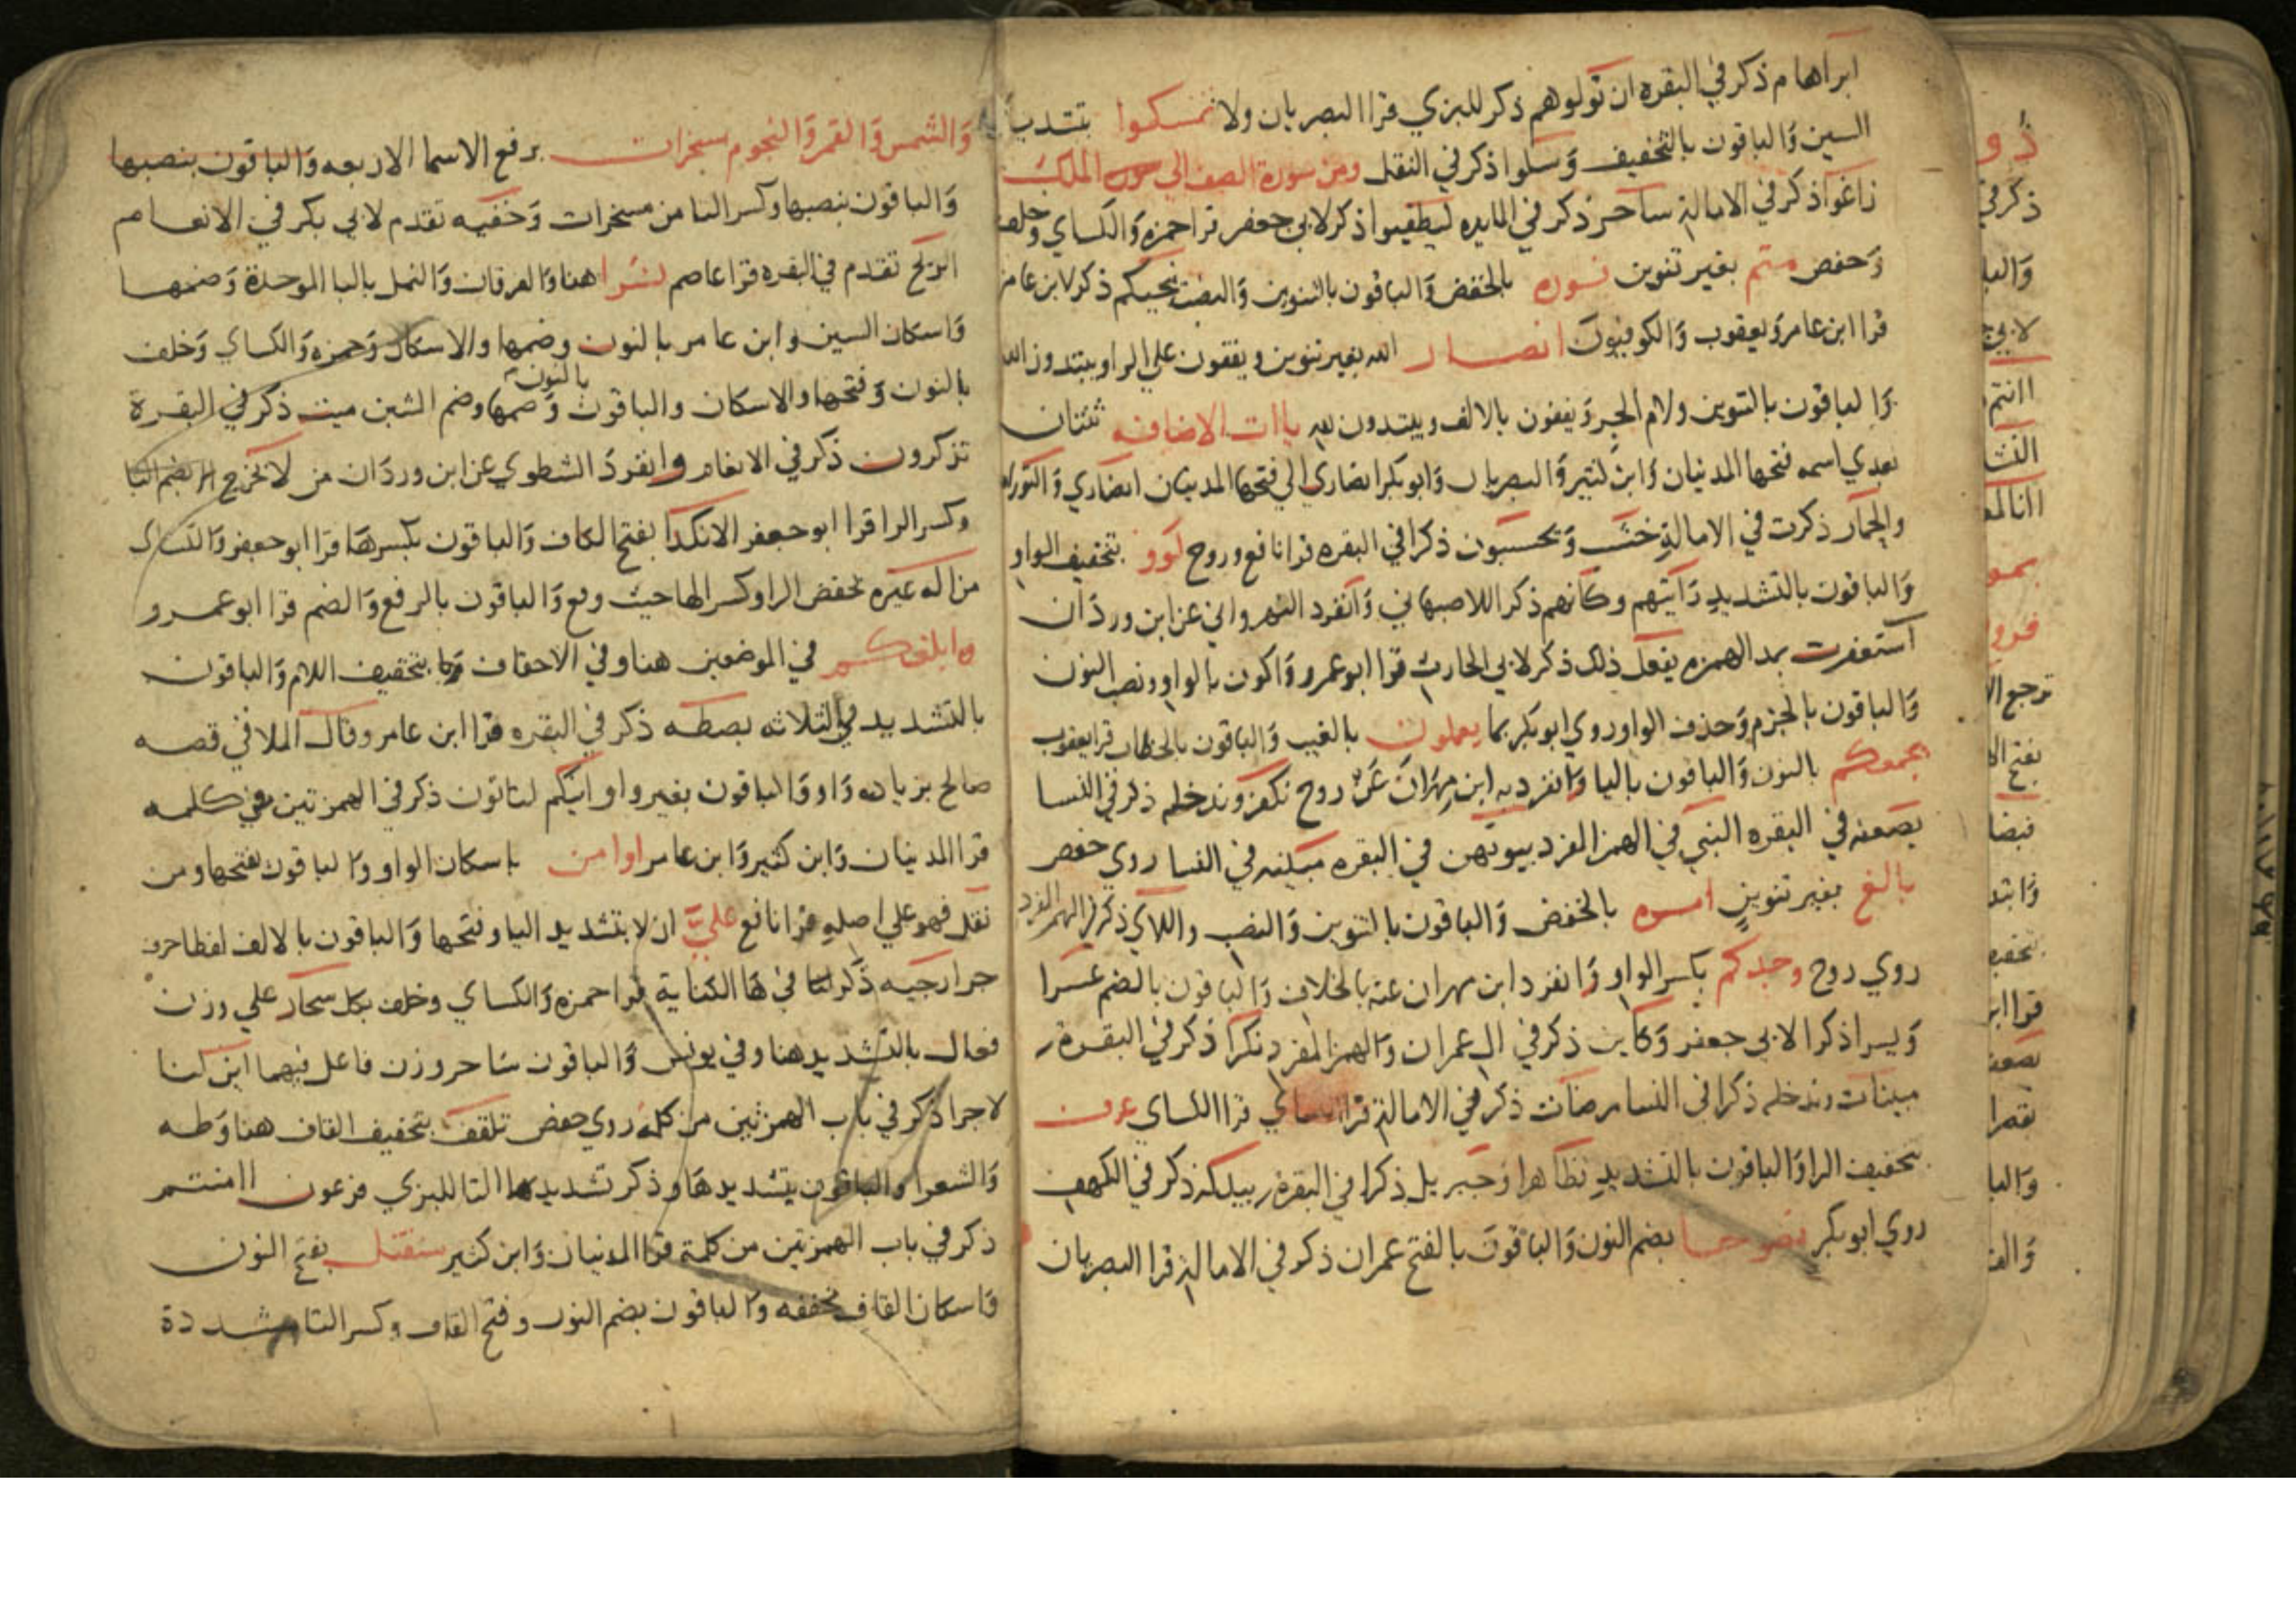 ابراهام ذكر في البقره ان تولوهم ذكر للبزي قرا البصريان ولا تمسكوا بتشديد
السين والباقون بالتخفيف وسلوا ذكر في النقل ومن سورة الصف الى سورة الملك
زاغوا ذكر في الامالة ساحر ذكر في المايده ليطفيوا ذكر لابي جعفر قرا حمزه والكساي وخلف
وحفص متم بغير تنوين نوره بالخفض والباقون بالتنوين والنصب تنجيكم ذكر لابن عامر
قرا ابن عامر ويعقوب والكوفيون انصار الله بغير تنوين ويقفون علي الرا ويبتدون الله
والباقون بالتنوين ولام الجر ويقفون بالالف ويبتدون لله ياات الاضافه ثنتان
بعدي اسمه فتحها المدنيان وابن كثير والبصريان وابو بكر انصاري الي فتحها المدنيان انصاري والتوراه
والحمار ذكرت في الامالة خشب ويحسبون ذكرا في البقره قرا نافع وروح لوو بتخفيف الواو
والباقون بالتشديد رايتهم وكانهم ذكر اللاصبهاني وانفرد النهرواني عن ابن وردان
استغفرت بمد الهمزه يفعل ذلك ذكر لابي الحارث قرا ابو عمرو واكون بالواو ونصب النون
والباقون بالجزم وحذف الواو روي ابو بكر بما يعملون بالغيب والباقون بالخطاب قرا يعقوب
يجمعكم بالنون والباقون باليا وانفرد به ابن مهران عن روح نكفر وندخله ذكر في النسا
يضعفه في البقره النبي في الهمز المفرد بيوتهن في البقره مبينه في النسا روي حفص
بالغ بغير تنوين امره بالخفض والباقون بالتنوين والنصب واللاي ذكر في الهمز المفرد
روي روح وجدكم بكسر الواو وانفرد ابن مهران عنه بالخلاف والباقون بالضم عسرا
ويسرا ذكرا لابي جعفر وكاين ذكر في ال عمران والهمز المفرد نكرا ذكر في البقره
مبينات وندخله ذكرا في النسا مرضات ذكر في الامالة قرا الكساي عرف
بتخفيف الرا والباقون بالتشديد تظاهرا وجبريل ذكرا في البقره يبدله ذكر في الكهف
روي ابو بكر نصوحا بضم النون والباقون بالفتح عمران ذكر في الامالة قرا البصريان
والشمس والقمر والنجوم مسخرات برفع الاسما الاربعه والباقون بنصبها
والباقون بنصبها وكسر التا من مسخرات وخفيه تقدم لابي بكر في الانعام
الريح تقدم في البقره قرا عاصم بشرا هنا والفرقان والنمل بالبا الموحدة وضمها
واسكان الشين وابن عامر بالنون وضمها والاسكان وحمزه والكساي وخلف
بالنون وفتحها والاسكان والباقون بالنون وضمها وضم الشين ميت ذكر في البقرة
تذكرون ذكر في الانعام وانفرد الشطوي عن ابن وردان من لا يخرج الا بضم اليا
وكسر الرا قرا ابو جعفر الا نكدا بفتح الكاف والباقون بكسرها قرا ابو جعفر والكساي
من اله غيره بخفض الرا وكسر الها حيث وقع والباقون بالرفع والضم قرا ابو عمرو
ابلغكم في الموضعين هنا وفي الاحقاف بتخفيف اللام والباقون
بالتشديد في الثلاثه بصطه ذكر في البقره قرا ابن عامر وقال الملا في قصه
صالح بزياده واو والباقون بغير واو ائنكم لتاتون ذكر في الهمزتين من كلمه
قرا المدنيان وابن كثير وابن عامر اوامن باسكان الواو والباقون بفتحها ومن
نقل فهو علي اصله قرا نافع علي ان لا بتشديد اليا وفتحها والباقون بالالف لفظا حرف
جر ارجيه ذكر في ها الكناية قرا حمزه والكساي وخلف بكل سحار علي وزن
فعال بالتشديد هنا وفي يونس والباقون ساحر وزن فاعل فيهما ائن لنا
لاجرا ذكر في باب الهمزتين من كلمة روي حفص تلقف بتخفيف القاف هنا وطه
والشعرا والباقون بتشديدها وذكر تشديد التا للبزي فرعون اامنتم
ذكر في باب الهمزتين من كلمة قرا المدنيان وابن كثير سنقتل بفتح النون
واسكان القاف مخففه والباقون بضم النون وفتح القاف وكسر التا مشددة